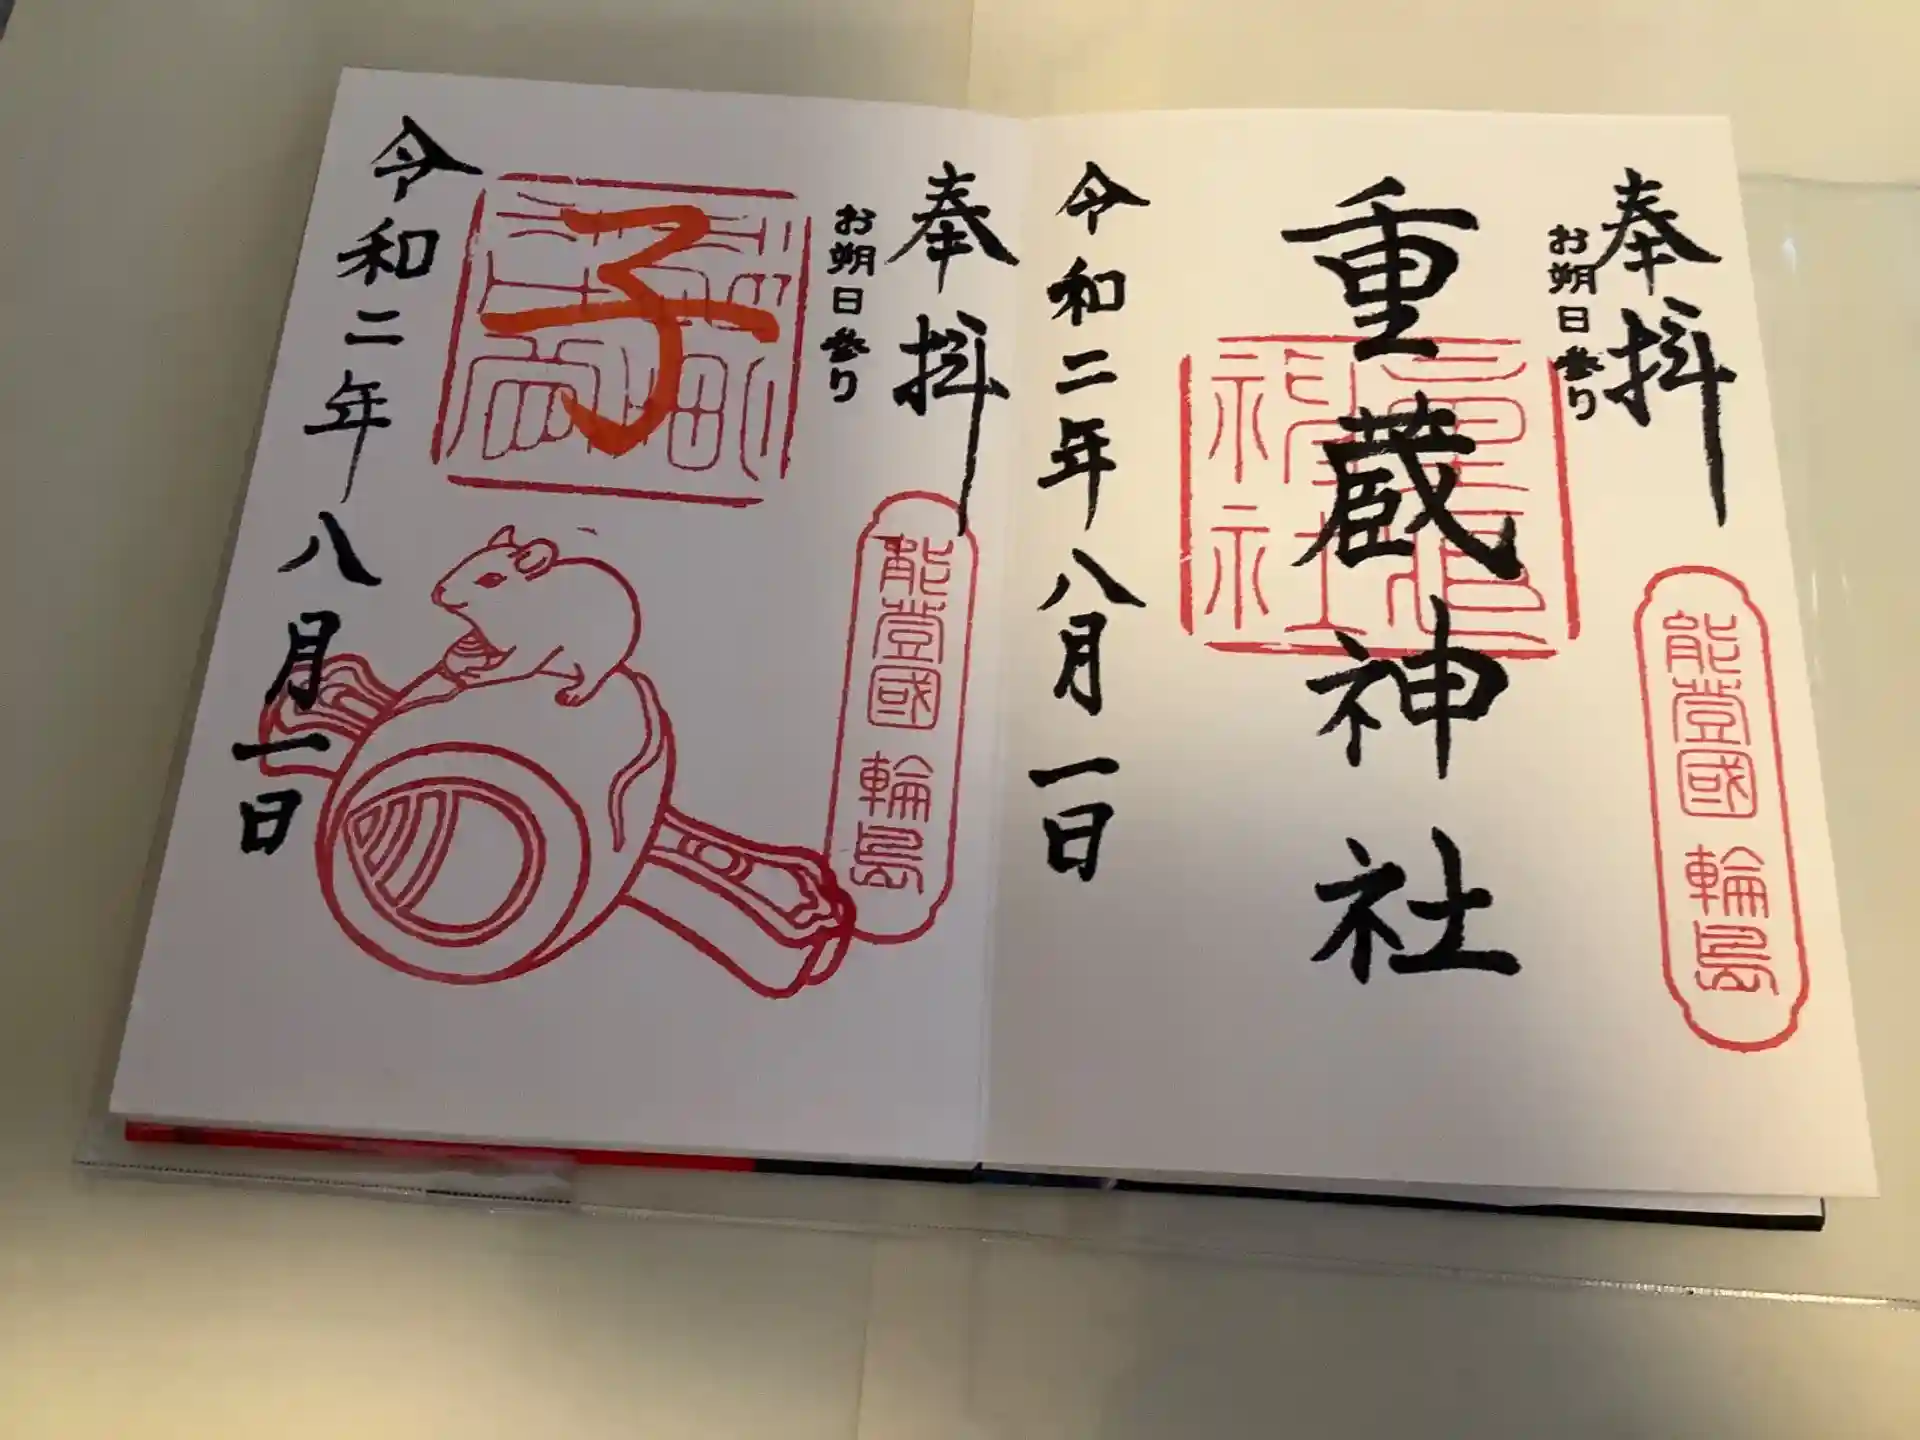 奉拝
お朔日参り
能登國 輪島
重蔵神社
重蔵神社
令和二年八月一日
奉拝
お朔日参り
能登國 輪島
子
令和二年八月一日